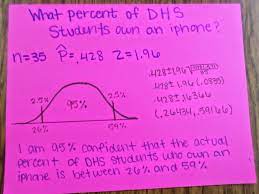 What percent of DHS
Students own an iphone?
n=35 P̂=.428 Z=1.96
.428±1.96
.428±1.96 (.0835)
.428±.16366
(.26434,.59166)
2.5% 95% 2.5%
26% 59%
I am 95% confident that the actual
percent of DHS students who own an
iphone is between 26% and 59%